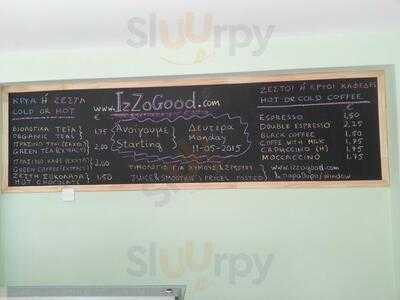 ΚΡΥΑ Ή ΖΕΣΤΑ
COLD OR HOT
€
ΒΙΟΛΟΓΙΚΑ ΤΕΪΑ
ORGANIC TEAS } 1,75
ΠΡΑΣΙΝΟ ΤΣΑΪ
GREEN TEA } 2,00
ΠΡΑΣΙΝΟ ΚΑΦΕ
GREEN COFFEE } 2,00
ΖΕΣΤΗ ΣΟΚΟΛΑΤΑ
HOT CHOCOLATE } 1,50
www.IzZoGood.com
Ανοίγουμε
Starting
Δευτέρα
Monday
11-05-2015
ΤΙΜΟΛΟΓΙΟ ΓΙΑ ΧΥΜΟΥΣ &
JUICE & SMOOTHIE PRICES POSTED
www.izzogood.com
& παράθυρο/window
ΖΕΣΤΟΙ Ή ΚΡΥΟΙ ΚΑΦΕΔΕΣ
HOT OR COLD COFFEE
€
ESPRESSO 1,50
DOUBLE ESPRESSO 2,25
BLACK COFFEE 1,50
COFFEE WITH MILK 1,75
CAPPUCCINO (H) 1,75
MOCCACCINO 1,75
Sluurpy
Sluurpy
Sluurpy